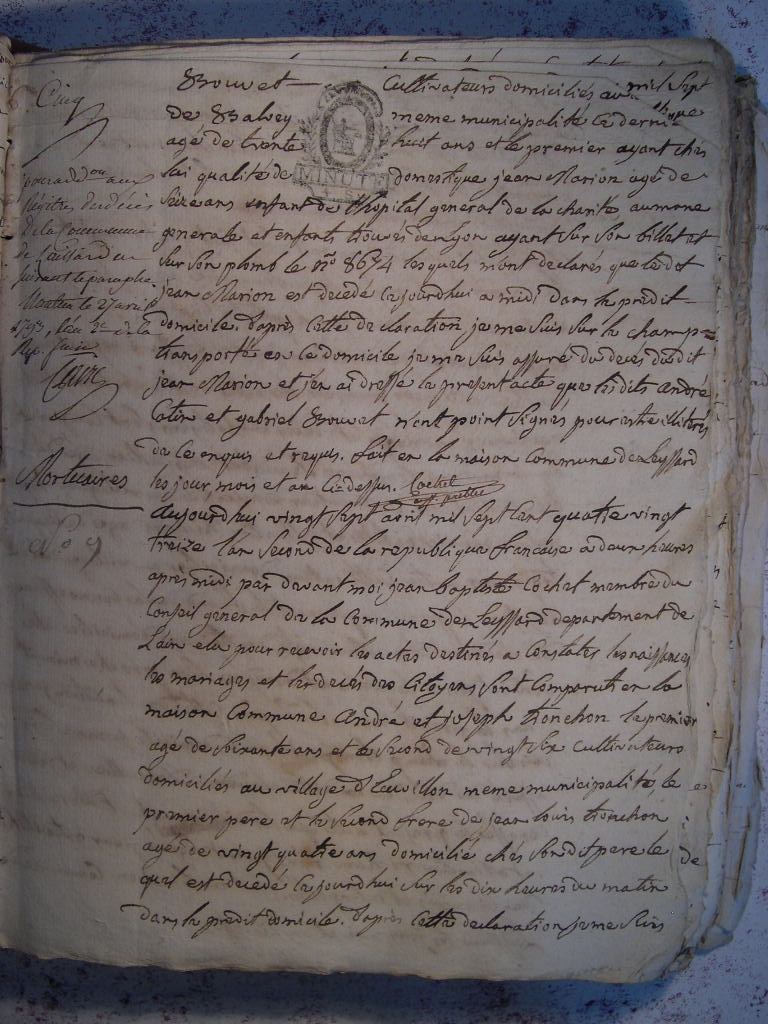 Cinq
pour addon aux
Régistres des décès
de la Commune
de Leissard en
suivant le paraphe
Nantua le 27 avril
1793, l'an 2e de la
Rep. fraise
Mortuaires
No 9
Brouvet Cultivateurs domiciliés au mil Sept
de Balvey meme municipalité ce dernier
agé de trente huit ans et le premier ayant chés
lui qualité de domestique jean Marion agé de
Seize ans enfant de l'hopital general de la charité, aumone
generale et enfants trouvés de Lyon ayant Sur Son billet et
Sur Son plomb le no 8634 les quels m'ont declarés que le dt
jean Marion est decedé cejourdhui a midi dans le prédit
domicile. d'après cette declaration je me suis sur le champ
transporté en ce domicile je me suis assuré du deces dudit
jean Marion et j'en ai dressé le present acte que lesdits andré
Cotin et gabriel Brouvet n'ont point Signés pour estre illiterés
de ce enquis et requis. fait en la maison Commune de Leyssard
les jour, mois et an ci dessus. Cochet
off. public
MINUTE
aujourdhui vingt Sept avril mil Sept Cent quatre vingt
treize l'an Second de la republique francaise a deux heures
après midi par devant moi jean baptiste Cochet membre du
Conseil général de la Commune de Leyssard departement de
L'ain elu pour recevoir les actes destinés a Constater les naissances
les mariages et les decés des Citoyens Sont Comparut en la
maison Commune André et joseph tronchon le premier
agé de Soixante ans et le Second de vingt Six cultivateurs
domiciliés au village d'Leuvillon meme municipalité, le
premier pere et le Second frere de jean louis tronchon
agé de vingt quatre ans domicilié chés Son dit pere le
quel est decedé cejourdhui Sur les dix heures du matin
dans le prédit domicile. d'après cette declaration je me Suis